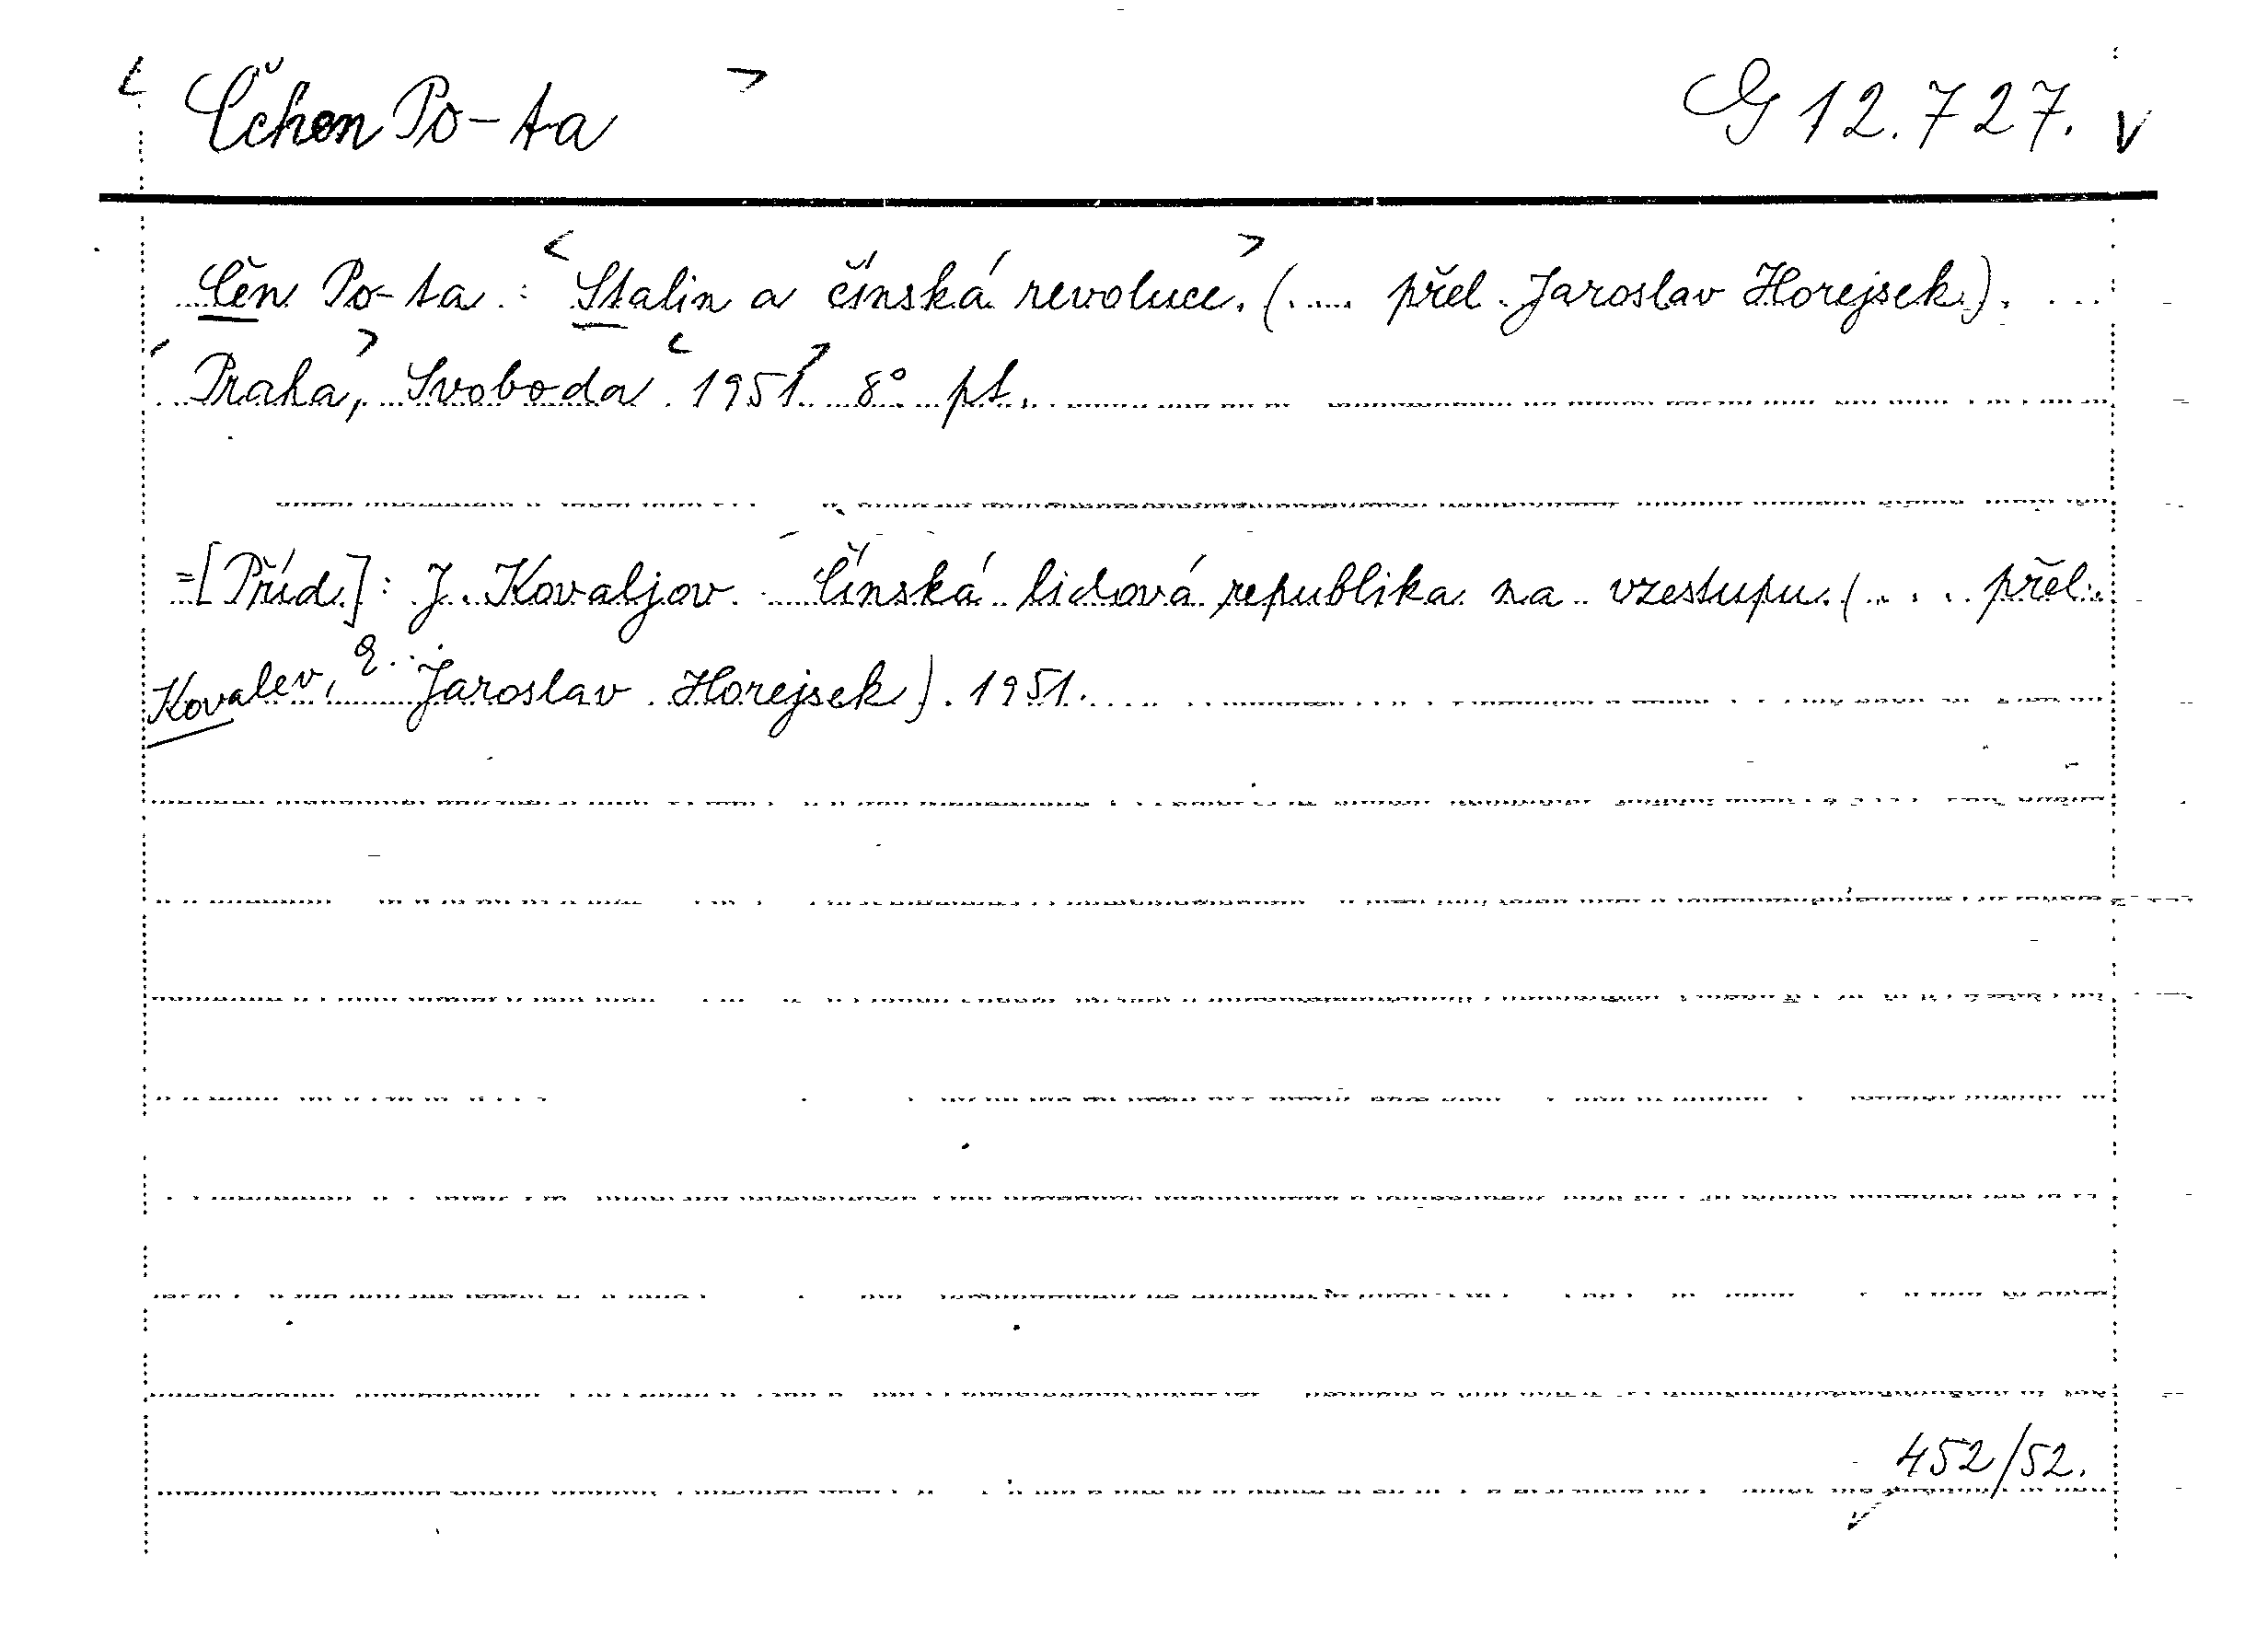 < Čchen Po-ta > G 12.727. v
Čěn Po-ta: <Stalin a čínská revoluce.> (.... přel. Jaroslav Horejsek). ...
<Praha,> Svoboda <1951> 8° pt.
=[Příd.]: J. Kovaljov. Čínská lidová republika na vzestupu. (.... přel.
Kovalev, Jaroslav Horejsek). 1951.
452/52.